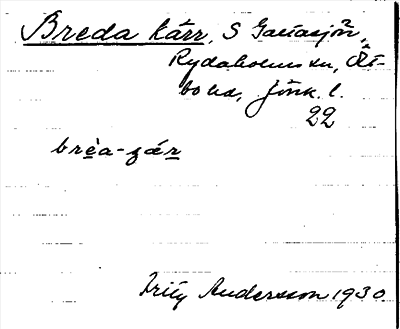 Breda kärr, S Galtasjön,
Rydaholms sn, Öst-
bo hd, Jönk. l.
22
brèa-zǽr
Fritz Andersson 1930.